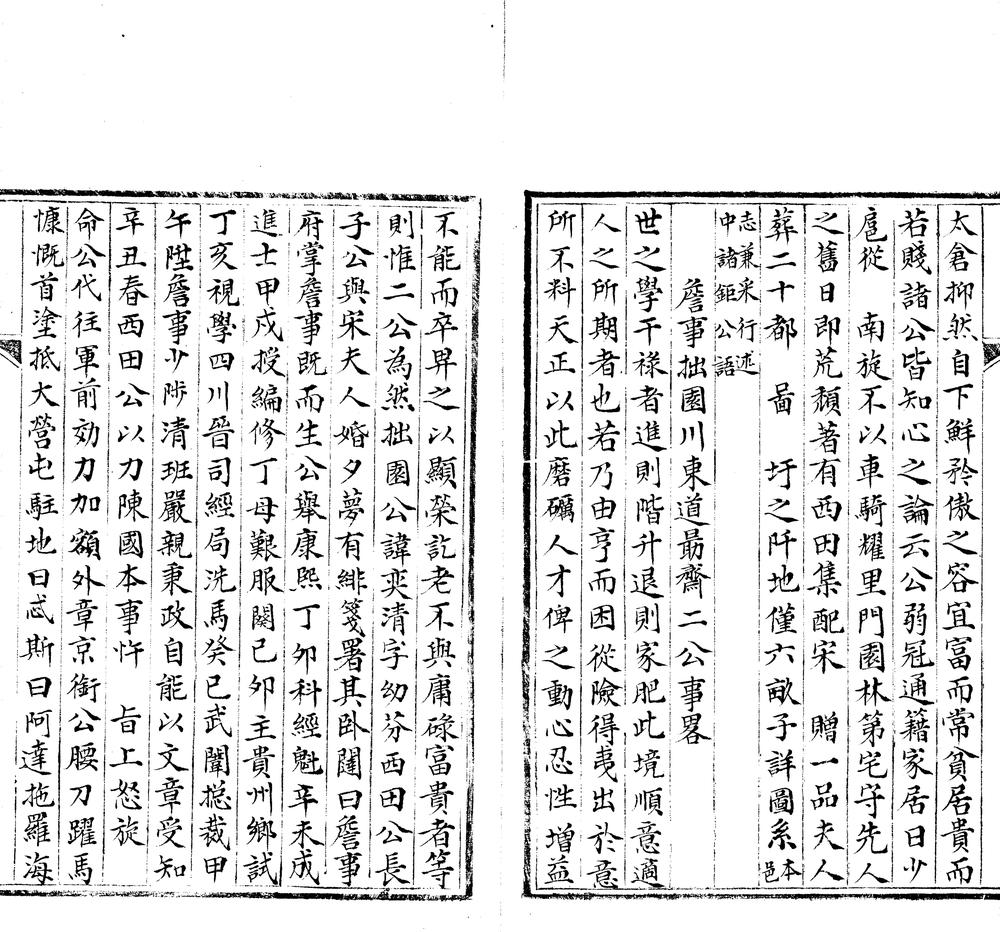 太倉抑然自下鮮矜傲之容宜富而常貧居貴而
若賤諸公皆知心之論云公弱冠通籍家居日少
扈從　南旋不以車騎耀里門園林第宅守先人
之舊日即荒頽著有西田集配宋　贈一品夫人
葬二十都　啚　圩之阡地僅六畝子詳圖系本邑
志兼采行述
中諸鉅公語
詹事拙園川東道朂齋二公事畧
世之學干祿者進則階升退則家肥此境順意適
人之所期者也若乃由亨而困從險得夷出於意
所不料天正以此磨礪人才俾之動心忍性增益
不能而卒畀之以顯榮訖老不與庸碌富貴者等
則惟二公為然拙園公諱奕清字幼芬西田公長
子公與宋夫人婚夕夢有緋箋署其卧闥曰詹事
府掌詹事既而生公舉康熙丁夘科經魁辛未成
進士甲戍授編修丁母艱服闋己夘主貴州鄉試
丁亥視學四川晉司經局洗馬癸巳武闈摠裁甲
午陞詹事少陟清班嚴親秉政自能以文章受知
辛丑春西田公以力陳國本事忤　旨上怒旋
命公代往軍前効力加額外章京銜公腰刀躍馬
慷慨首塗抵大營屯駐地曰忒斯曰阿達拖羅海